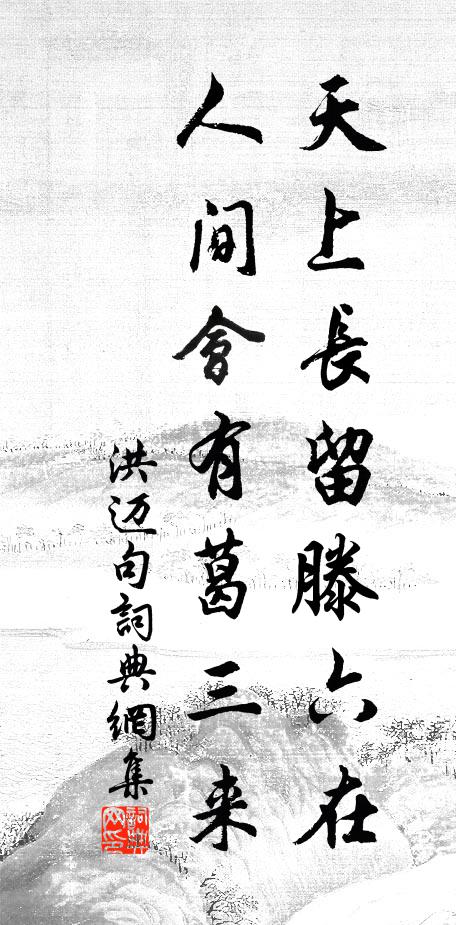 天上長留滕六在
人間會有葛三来
洪迈句詞典網集